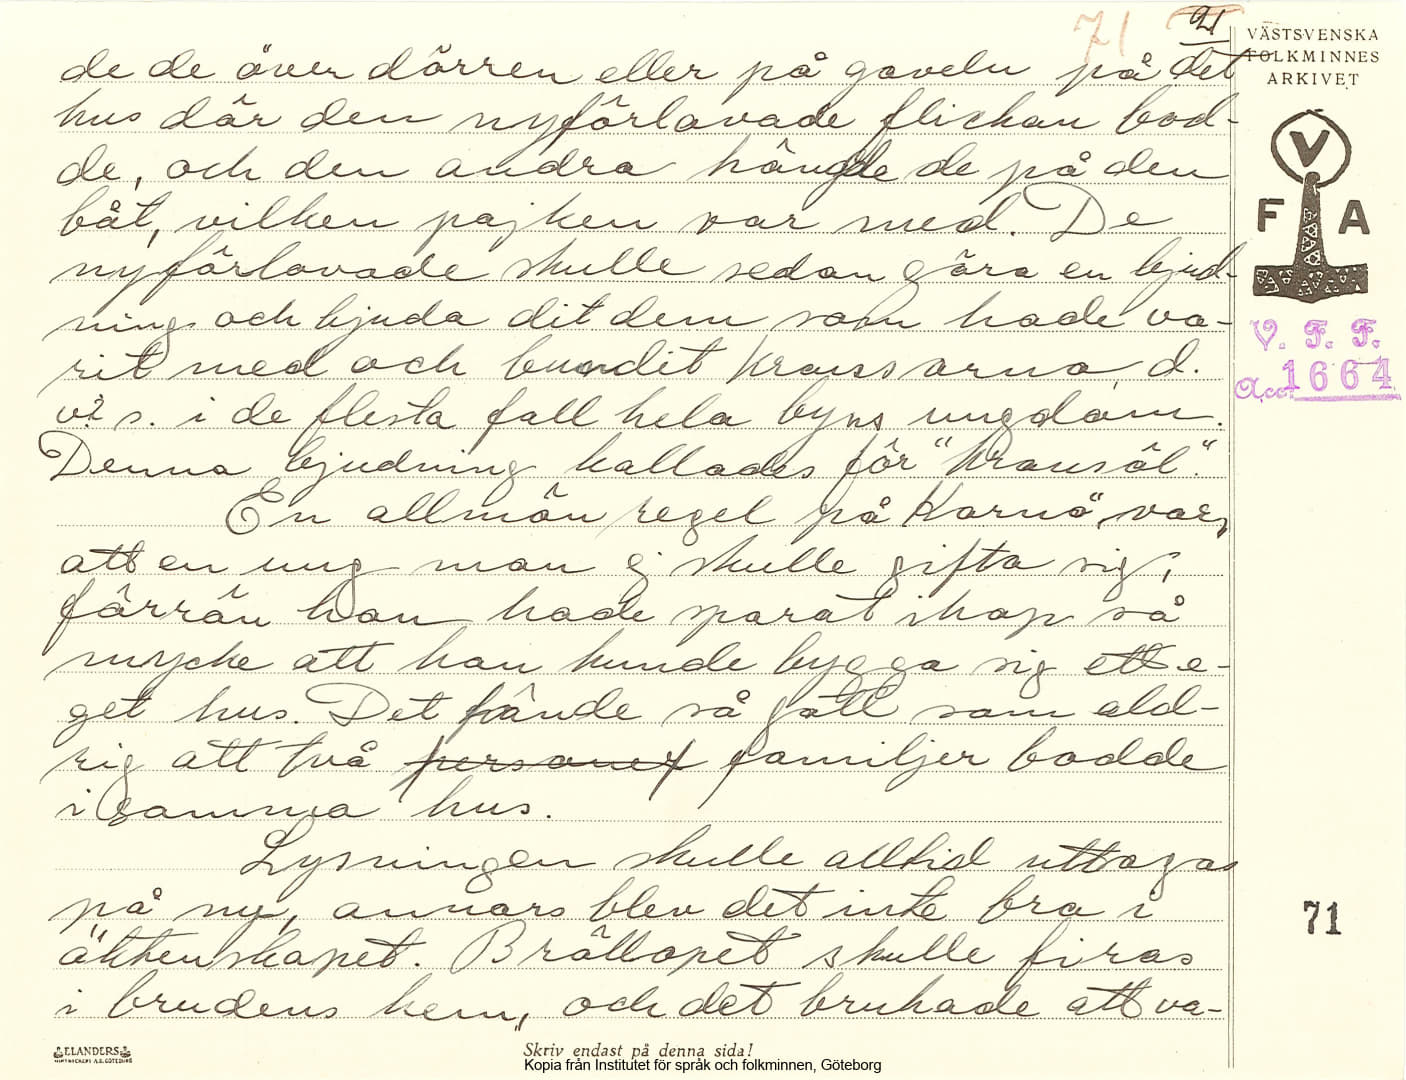 71 21
VÄSTSVENSKA
FOLKMINNES
ARKIVET
V
F A
V. F. F.
Acc. 1664
de de över dörren eller på gaveln på det
hus där den nyförlovade flickan bod-
de, och den andra hängde de på den
båt, vilken pojken var med. De
nyförlovade skulle sedan göra en bjud-
ning och bjuda dit dem som hade va-
rit med och bundit kransarna, d.
v. s. i de flesta fall hela byns ungdom.
Denna bjudning kallades för "Kransöl".
En allmän regel på Karnö var,
att en ung man ej skulle gifta sig,
förrän han hade sparat ihop så
mycke att han kunde bygga sig ett e-
get hus. Det hände så gott som ald-
rig att två personer familjer bodde
i samma hus.
Lysningen skulle alltid uttagas
på ny, annars blev det inte bra i
äktenskapet. Bröllopet skulle firas
i brudens hem, och det brukade att va-
71
ELANDERS
BOKTRYCKERI A.B. GÖTEBORG
Skriv endast på denna sida!
Kopia från Institutet för språk och folkminnen, Göteborg